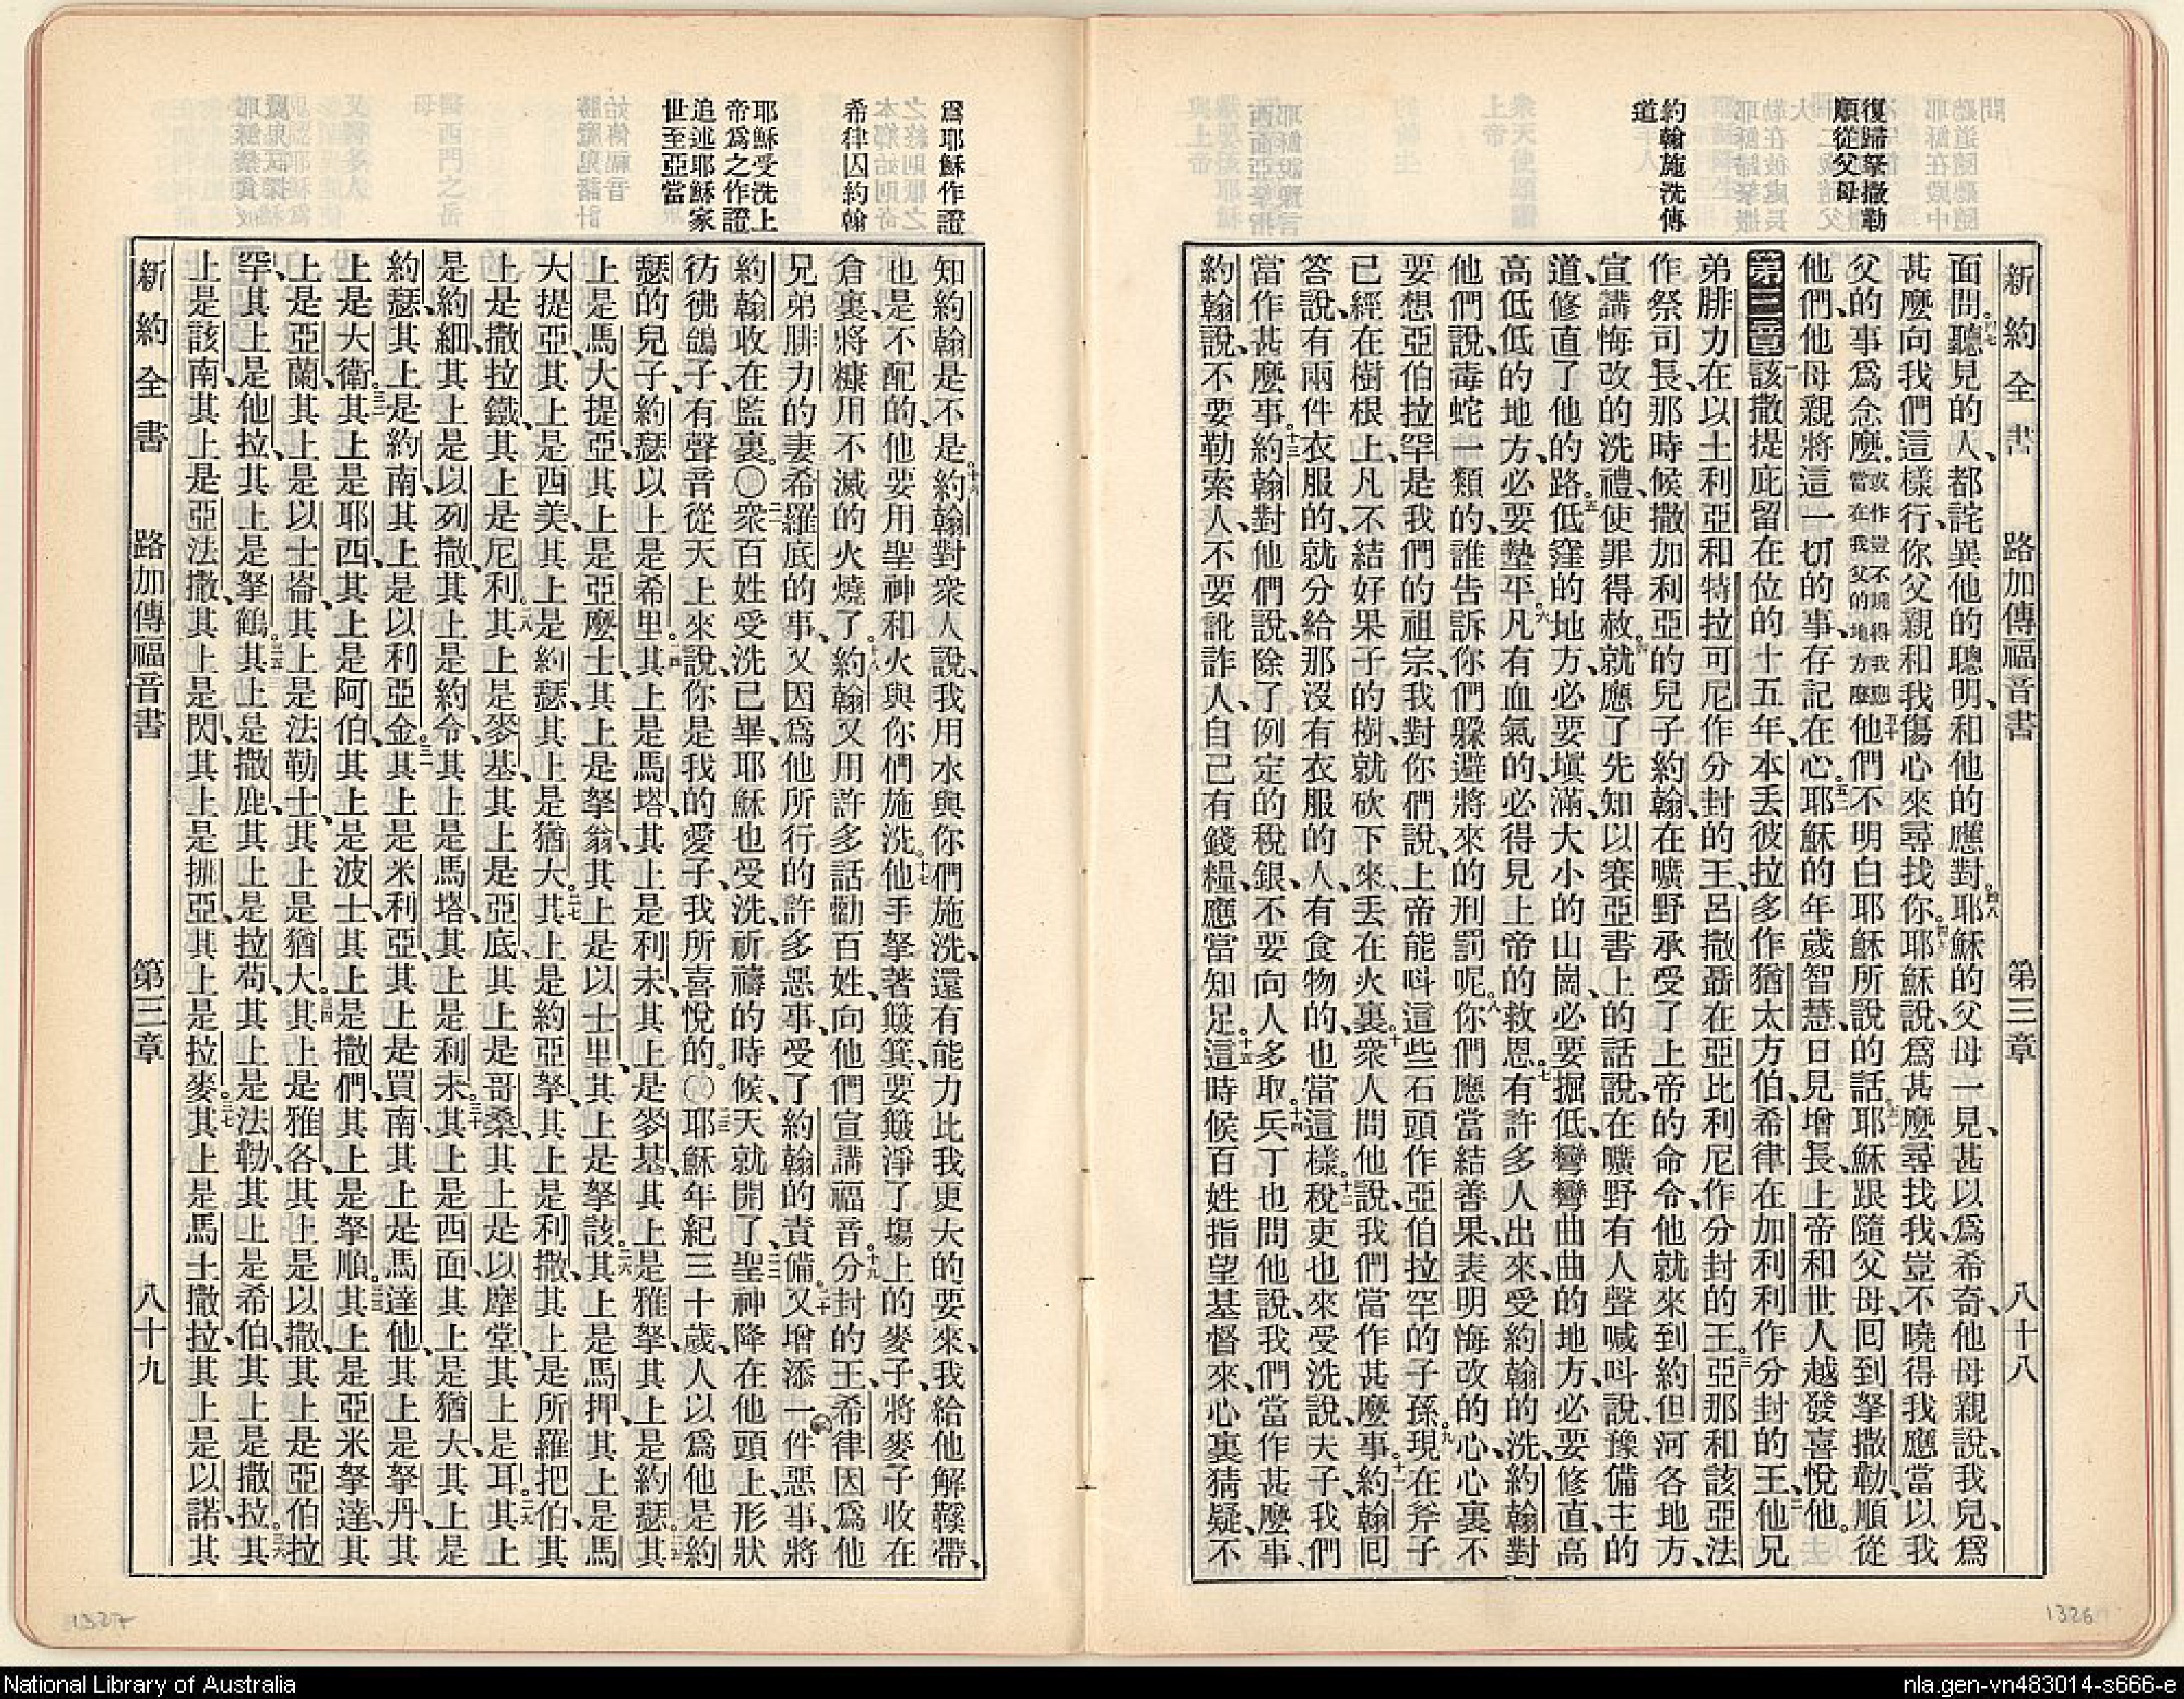 復歸拏撒勒
順從父母
約翰施洗傳
道
新約全書 路加傳福音書 第三章 八十八
面問聽見的人、都詫異他的聰明、和他的應對。耶穌的父母一見、甚以爲希奇、他母親說、我兒、爲
甚麼向我們這樣行、你父親和我傷心來尋找你。耶穌說、爲甚麼尋找我、豈不曉得我應當以我
父的事爲念麼。或作豈不曉得我應當在我父的地方麼他們不明白耶穌所說的話。耶穌跟隨父母、回到拏撒勒、順從
他們、他母親將這一切的事、存記在心。耶穌的年歲智慧、日見增長、上帝和世人越發喜悅他。
第三章該撒提庇留在位的十五年、本丟彼拉多作猶太方伯、希律在加利利作分封的王、他兄
弟腓力、在以土利亞和特拉可尼作分封的王、呂撒聶在亞比利尼作分封的王。亞那和該亞法
作祭司長、那時候撒加利亞的兒子約翰、在曠野承受了上帝的命令、他就來到約但河各地方、
宣講悔改的洗禮、使罪得赦。就應了先知以賽亞書上的話說、在曠野有人聲喊呌說、豫備主的
道、修直了他的路。低窪的地方、必要塡滿、大小的山崗、必要掘低、彎彎曲曲的地方、必要修直、高
高低低的地方、必要墊平。凡有血氣的、必得見上帝的救恩。有許多人出來、受約翰的洗、約翰對
他們說、毒蛇一類的、誰告訴你們躲避將來的刑罰呢。你們應當結善果、表明悔改的心、心裏不
要想亞伯拉罕是我們的祖宗、我對你們說、上帝能呌這些石頭作亞伯拉罕的子孫。現在斧子
已經在樹根上、凡不結好果子的樹、就砍下來、丟在火裏。衆人問他說、我們當作甚麼事。約翰回
答說、有兩件衣服的、就分給那沒有衣服的人、有食物的、也當這樣。稅吏也來受洗說、夫子、我們
當作甚麼事。約翰對他們說、除了例定的稅銀、不要向人多取。兵丁也問他說、我們當作甚麼事、
約翰說、不要勒索人、不要訛詐人、自己有錢糧、應當知足。這時候百姓指望基督來、心裏猜疑、不
爲耶穌作證
希律囚約翰
耶穌受洗上
帝爲之作證
追述耶穌家
世至亞當
知約翰是不是。約翰對衆人說、我用水與你們施洗、還有能力比我更大的要來、我給他解鞵帶、
也是不配的、他要用聖神和火與你們施洗。他手拏著簸箕、要簸淨了塲上的麥子、將麥子收在
倉裏、將糠用不滅的火燒了。約翰又用許多話勸百姓、向他們宣講福音。分封的王希律、因爲他
兄弟腓力的妻希羅底的事、又因爲他所行的許多惡事、受了約翰的責備。又增添一件惡事、將
約翰收在監裏。〇衆百姓受洗已畢、耶穌也受洗、祈禱的時候、天就開了、聖神降在他頭上、形狀
彷彿鴿子、有聲音從天上來說、你是我的愛子、我所喜悅的。〇耶穌年紀三十歲、人以爲他是約
瑟的兒子、約瑟以上是希里。其上是馬塔、其上是利未、其上是麥基、其上是雅拏、其上是約瑟。其
上是馬大提亞、其上是亞麼士、其上是拏翁、其上是以士里、其上是拏該。其上是馬押、其上是馬
大提亞、其上是西美、其上是約瑟、其上是猶大。其上是約亞拏、其上是利撒、其上是所羅把伯、其
上是撒拉鐵、其上是尼利。其上是麥基、其上是亞底、其上是哥桑、其上是以摩堂、其上是耳。其上
是約細、其上是以列撒、其上是約令、其上是馬塔、其上是利未。其上是西面、其上是猶大、其上是
約瑟、其上是約南、其上是以利亞金。其上是米利亞、其上是買南、其上是馬達他、其上是拏丹、其
上是大衛。其上是耶西、其上是阿伯、其上是波士、其上是撒們、其上是拏順。其上是亞米拏達、其
上是亞蘭、其上是以士崙、其上是法勒士、其上是猶大。其上是雅各、其上是以撒、其上是亞伯拉
罕、其上是他拉、其上是拏鶴。其上是撒鹿、其上是拉茍、其上是法勒、其上是希伯、其上是撒拉。其
上是該南、其上是亞法撒、其上是閃、其上是挪亞、其上是拉麥。其上是馬土撒拉、其上是以諾、其
新約全書 路加傳福音書 第三章 八十九
1327
1326
National Library of Australia
nla.gen-vn483014-s666-e